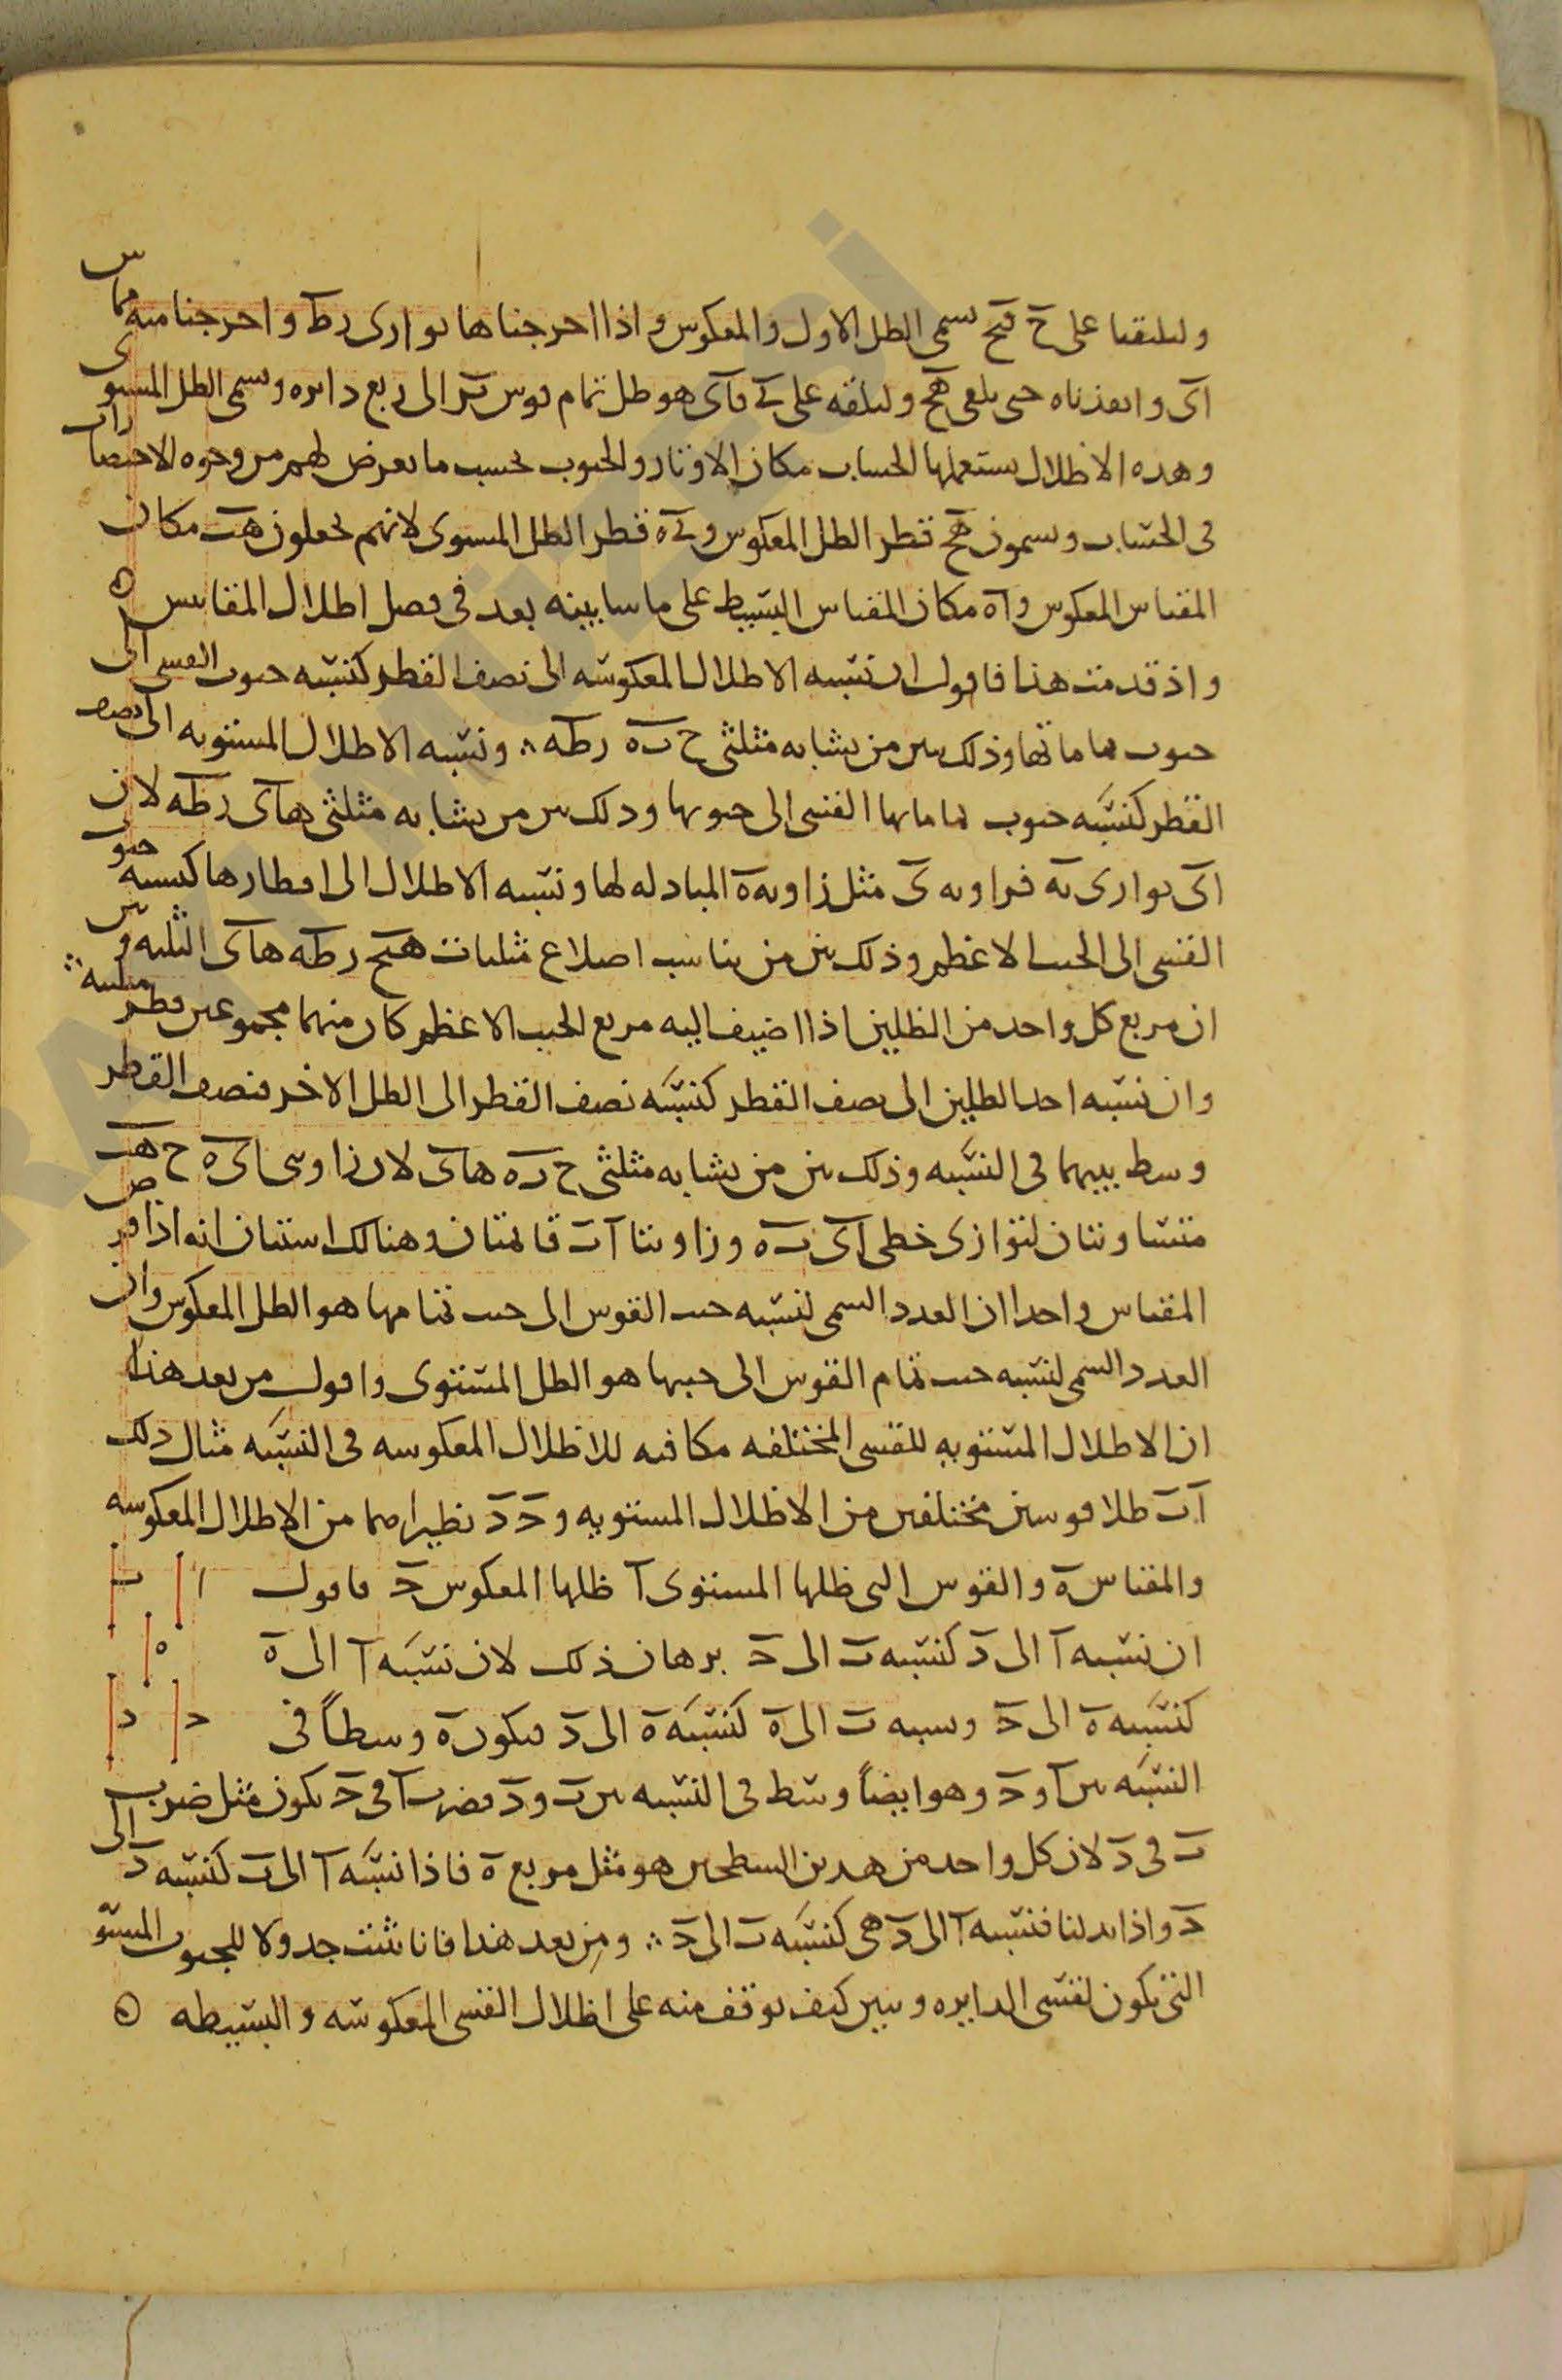 وليلتقيا على ح فبح يسمى الظل الاول والمعكوس واذا اخرجنا ها يوازى رط واخرجنا منه مماس
اى وانفذناه حتى يلقى هح وليلقه على ى فاى هو ظل تمام قوس بر الى ربع دايره ويسمى الظل المستوى
وهذه الاظلال يستعملها الحساب مكان الاوتار والجيوب بحسب ما يعرض لهم من وجوه الاختصارات
فى الحساب ويسمون هح قطر الظل المعكوس وى ه قطر الظل المستوى لانهم يجعلون هب مكان
المقياس المعكوس واه مكان المقياس البسيط على ما سابينه بعد فى فصل اظلال المقاييس ه
واذ قدمت هذا فاقول ان نسبه الاظلال المعكوسه الى نصف القطر كنسبه جيوب القسى الى
جيوب تماماتها وذلك بين من تشابه مثلثى ح ب ه رطه ∴ ونسبه الاظلال المستويه الى نصف
القطر كنسبه جيوب تماماتها القسى الى جيوبها وذلك بين من تشابه مثلثى هاى رطه لان
اى يوازى به فزاويه ى مثل زاويه ه المبادله لها ونسبه الاظلال الى اقطارها كنسبه جيوب
القسى الى الجيب الاعظم وذلك بين من تناسب اضلاع مثلثات هبح رطه هاى الثلثه وبين
ان مربع كل واحد من الظلين اذا اضيف اليه مربع الجيب الاعظم كان منهما مجموعين قطر مثلثه ∴
وان نسبه احد الظلين الى نصف القطر كنسبه نصف القطر الى الظل الاخر فنصف القطر
وسط بينهما فى النسبه وذلك بين من تشابه مثلثى ح ب ه هاى لان زاويتى اى ه ح هب
متساويتان لتوازى خطى اى ب ه وزاويتا ا ب قايمتان وهنالك استبان انه اذا فرض
المقياس واحدا ان العدد السمى لنسبه جيب القوس الى جيب تمامها هو الظل المعكوس وان
العدد السمى لنسبه جيب تمام القوس الى جيبها هو الظل المستوى واقول من بعد هذا
ان الاظلال المستويه للقسى المختلفه مكافيه للاظلال المعكوسه فى النسبه مثال ذلك
ا ب ظلا قوسين مختلفين من الاظلال المستويه و ج د نظيراهما من الاظلال المعكوسه
والمقياس ه والقوس التى ظلها المستوى ا ظلها المعكوس ج فاقول ا ب
ان نسبه ا الى د كنسبه ب الى ج برهان ذلك لان نسبه ا الى ه ه
كنسبه ه الى ج ونسبه ب الى ه كنسبه ه الى د فيكون ه وسطاً فى ج د
النسبه بين ا و ج وهو ايضاً وسط فى النسبه بين ب و د فضرب ا فى ج يكون مثل ضرب
ب فى د لان كل واحد من هذين السطحين هو مثل مربع ه فاذا نسبه ا الى ب كنسبه د الى
ج واذا بدلنا فنسبه ا الى د هى كنسبه ب الى ج ∴ ومن بعد هذا فانا نثبت جدولا للجيوب المستو
التى تكون لقسى الدايره ونبين كيف يوقف منه على اظلال القسى المعكوسه والبسيطه ه